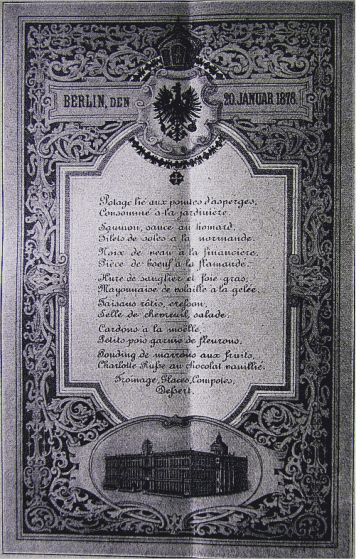 BERLIN, DEN 20. JANUAR 1878.
Potage lié aux pointes d'asperges,
Consommé à la jardinière.
Saumon, sauce au homard.
Filets de soles à la normande.
Noix de veau à la financière.
Pièce de boeuf à la flamande.
Hure de sanglier et foie gras,
Mayonnaise de volaille à la gelée.
Faisans rôtis, cresson,
Selle de chevreuil, salade.
Cardons à la moëlle,
Petits pois garnis de fleurons,
Pouding de marrons aux fruits,
Charlotte Russe au chocolat vanillié.
Fromage, Glaces, Compotes,
Dessert.